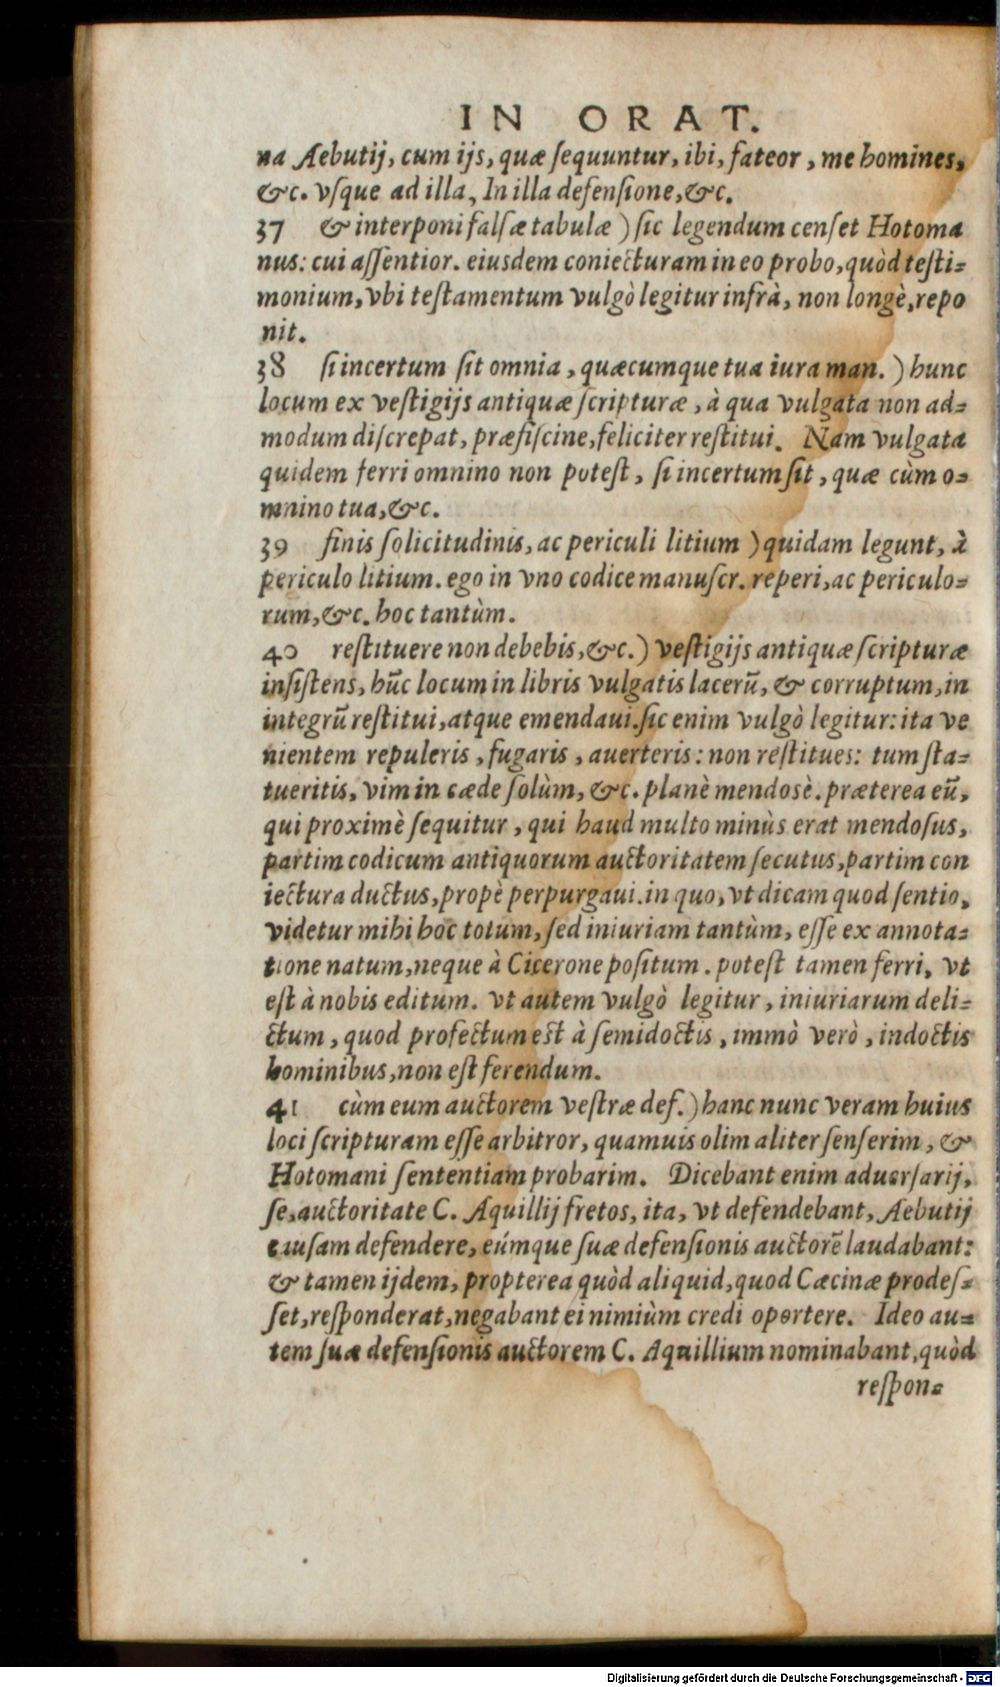 IN ORAT.
na Aebutij, cum ijs, quæ ſequuntur, ibi, fateor, me homines,
&c. vſque ad illa, In illa defenſione, &c.
37 & interponi falſæ tabulæ ) ſic legendum cenſet Hotoma
nus: cui aſſentior. eiusdem coniecturam in eo probo, quòd teſti-
monium, vbi teſtamentum vulgò legitur infrà, non longè, repo
nit.
38 ſi incertum ſit omnia, quæcumque tua iura man. ) hunc
locum ex veſtigijs antiquæ ſcripturæ, à qua vulgata non ad-
modum diſcrepat, præfiſcine, feliciter reſtitui. Nam vulgata
quidem ferri omnino non poteſt, ſi incertum ſit, quæ cùm o-
mnino tua, &c.
39 finis ſolicitudinis, ac periculi litium ) quidam legunt, à
periculo litium. ego in vno codice manuſcr. reperi, ac periculo-
rum, &c. hoc tantùm.
40 reſtituere non debebis, &c. ) veſtigijs antiquæ ſcripturæ
inſiſtens, hūc locum in libris vulgatis lacerū, & corruptum, in
integrū reſtitui, atque emendaui. ſic enim vulgò legitur: ita ve
nientem repuleris, fugaris, auerteris: non reſtitues: tum ſta-
tueritis, vim in cæde ſolùm, &c. planè mendosè. præterea eū,
qui proximè ſequitur, qui haud multo minùs erat mendoſus,
partim codicum antiquorum auctoritatem ſecutus, partim con
iectura ductus, propè perpurgaui. in quo, vt dicam quod ſentio,
videtur mihi hoc totum, ſed iniuriam tantùm, eſſe ex annota-
tione natum, neque à Cicerone poſitum. poteſt tamen ferri, vt
eſt à nobis editum. vt autem vulgò legitur, iniuriarum deli-
ctum, quod profectum est à ſemidoctis, immò verò, indoctis
hominibus, non eſt ferendum.
41 cùm eum auctorem veſtræ def. ) hanc nunc veram huius
loci ſcripturam eſſe arbitror, quamuis olim aliter ſenſerim, &
Hotomani ſententiam probarim. Dicebant enim aduerſarij,
ſe, auctoritate C. Aquillij fretos, ita, vt defendebant, Aebutij
cauſam defendere, eúmque ſuæ defenſionis auctorē laudabant:
& tamen ijdem, propterea quòd aliquid, quod Cæcinæ prodeſ-
ſet, reſponderat, negabant ei nimiùm credi oportere. Ideo au-
tem ſuæ defenſionis auctorem C. Aquillium nominabant, quòd
reſpon-
Digitalisierung gefördert durch die Deutsche Forschungsgemeinschaft - DFG